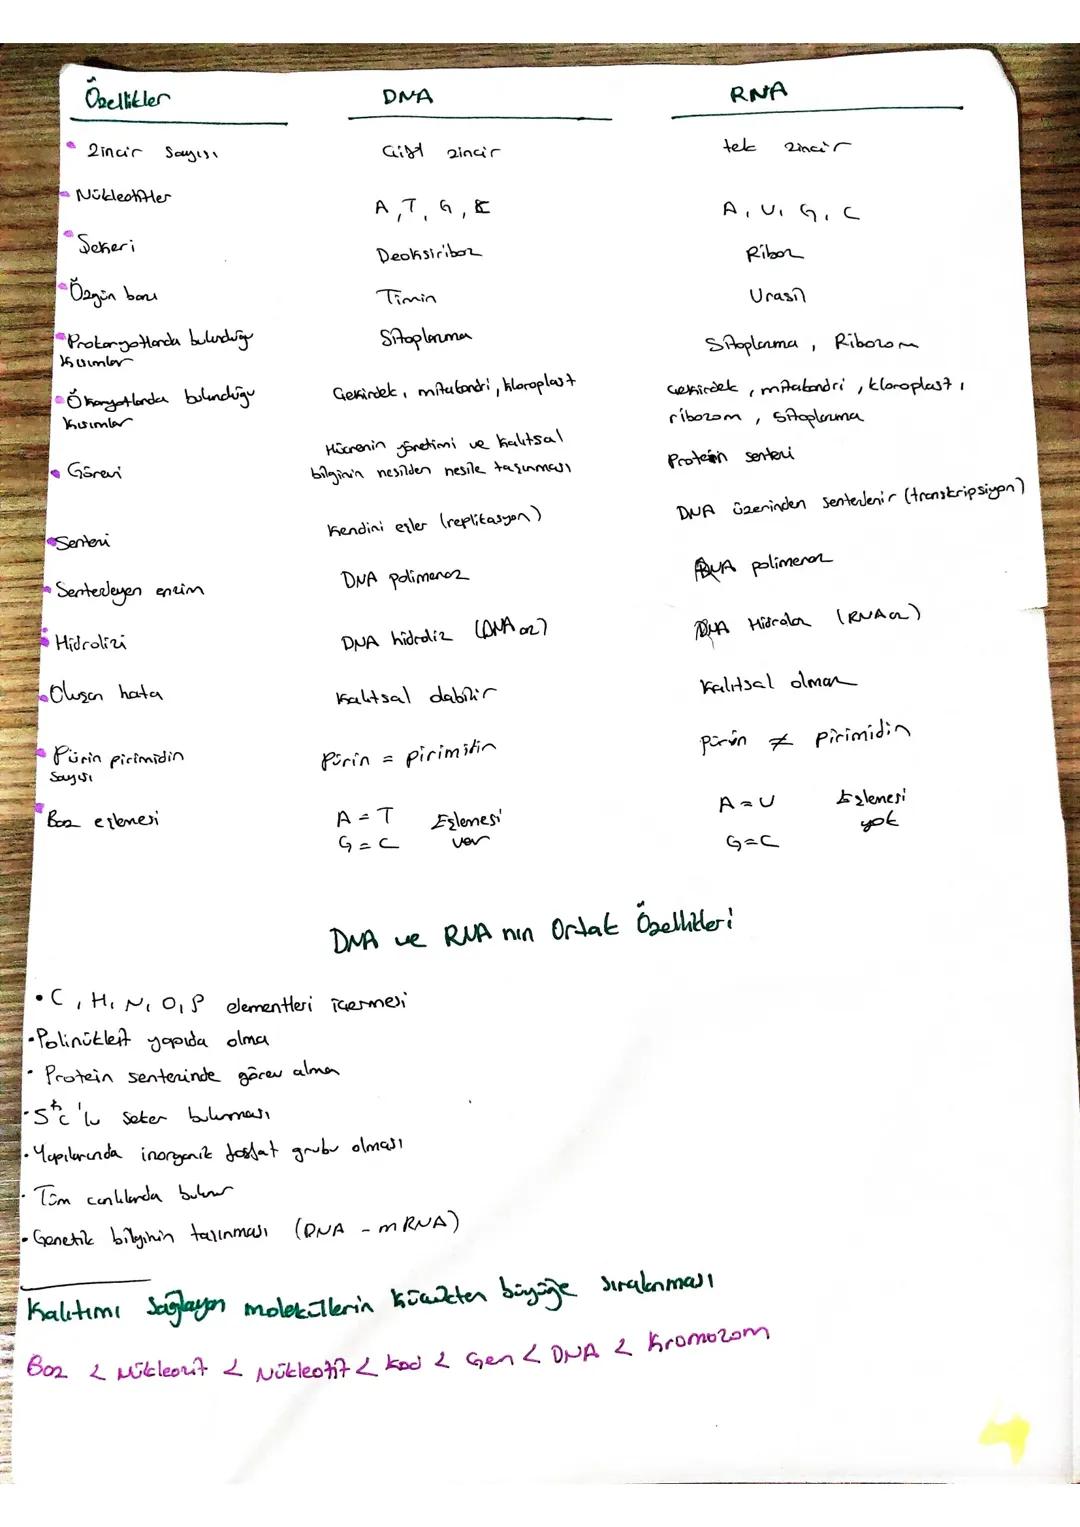 Özellikler DNA RNA
Zincir Sayısı Çift zincir tek zincir
Nükleotitler A, T, G, C A, U, G, C
Şekeri Deoksiriboz Riboz
Özgün bazı Timin Urasil
Prokaryotlarda bulunduğu Sitoplazma Sitoplazma, Ribozom
Kısımlar
Ökaryotlarda bulunduğu Çekirdek, mitokondri, kloroplast Çekirdek, mitokondri, kloroplast,
Kısımlar ribozom, sitoplazma
Görevi Hücrenin yönetimi ve kalıtsal Protein sentezi
bilginin nesilden nesile taşınması
Sentezi Kendini eşler (replikasyon) DNA üzerinden sentezlenir (transkripsiyon)
Sentezleyen enzim DNA polimeraz RNA polimeraz
Hidrolizi DNA hidroliz (DNA az) RNA Hidroliz (RNA az)
Oluşan hata Kalıtsal olabilir Kalıtsal olmaz
Pürin pirimidin pürin = pirimitin pürin ≠ pirimidin
Sayısı
Baz eşlemesi A = T Eşlemesi A = U Eşlemesi
G = C var G = C yok
DNA ve RNA nın Ortak Özellikleri
• C, H, N, O, P elementleri içermesi
• Polinükleit yapıda olma
• Protein sentezinde görev alma
• 5 C'lu şeker bulunması
• Yapılarında inorganik fosfat grubu olması
• Tüm canlılarda bulunur
• Genetik bilginin taşınması (DNA - mRNA)
Kalıtımı Sağlayan moleküllerin küçükten büyüğe sıralanması
Baz < Nükleozit < Nükleotit < Kod < Gen < DNA < Kromozom